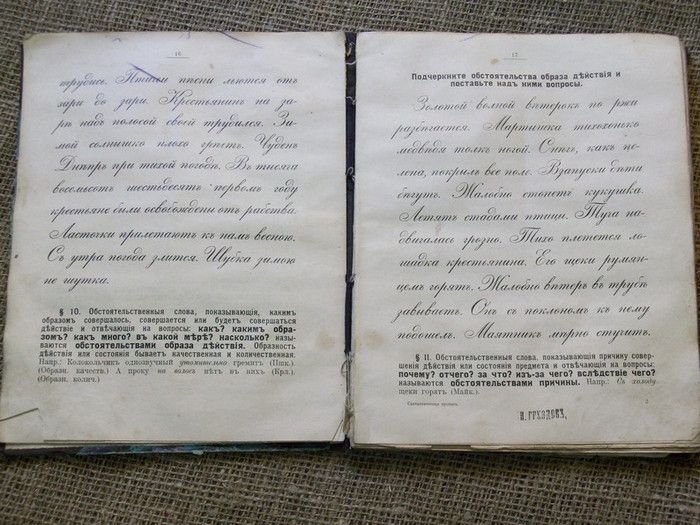 16
трудись. Птичьи пѣсни льются отъ
зари до зари. Крестьянинъ на за-
рѣ надъ полосой своей трудился. Зи-
мой солнышко плохо грѣетъ. Чуденъ
Днѣпръ при тихой погодѣ. Въ тысяча
восемьсотъ шестьдесятъ первомъ году
крестьяне были освобождены отъ рабства.
Ласточки прилетаютъ къ намъ весною.
Съ утра погода злится. Шубка зимою
не шутка.
§ 10. Обстоятельственныя слова, показывающія, какимъ
образомъ совершалось, совершается или будетъ совершаться
дѣйствіе и отвѣчающія на вопросы: какъ? какимъ обра-
зомъ? какъ много? въ какой мѣрѣ? насколько? назы-
ваются обстоятельствами образа дѣйствія. Образность
дѣйствія или состоянія бываетъ качественная и количественная.
Напр.: Колокольчикъ однозвучный утомительно гремитъ (Пшк.).
(Образн. качеств.) А проку на волосъ нѣтъ въ нихъ (Крл.)
(Образн. колич.)
17
Подчеркните обстоятельства образа дѣйствія и
поставьте надъ ними вопросы.
Золотой волной вѣтерокъ по ржи
разбѣгается. Мартышка тихохонько
медвѣдя толкъ ногой. Снѣгъ, какъ пе-
лена, покрылъ все поле. Взапуски дѣти
бѣгутъ. Жалобно стонетъ кукушка.
Летятъ стадами птицы. Туча на-
двигалась грозно. Тихо плетется ло-
шадка крестьянина. Его щеки румян-
цемъ горятъ. Жалобно вѣтеръ въ трубѣ
завываетъ. Онъ съ поклономъ къ нему
подошелъ. Маятникъ мѣрно стучитъ.
§ 11. Обстоятельственныя слова, показывающія причину совер-
шенія дѣйствія или состоянія предмета и отвѣчающія на вопросы:
почему? отчего? за что? изъ-за чего? вслѣдствіе чего?
называются обстоятельствами причины. Напр.: Съ холоду
щеки горятъ (Майк.).
2